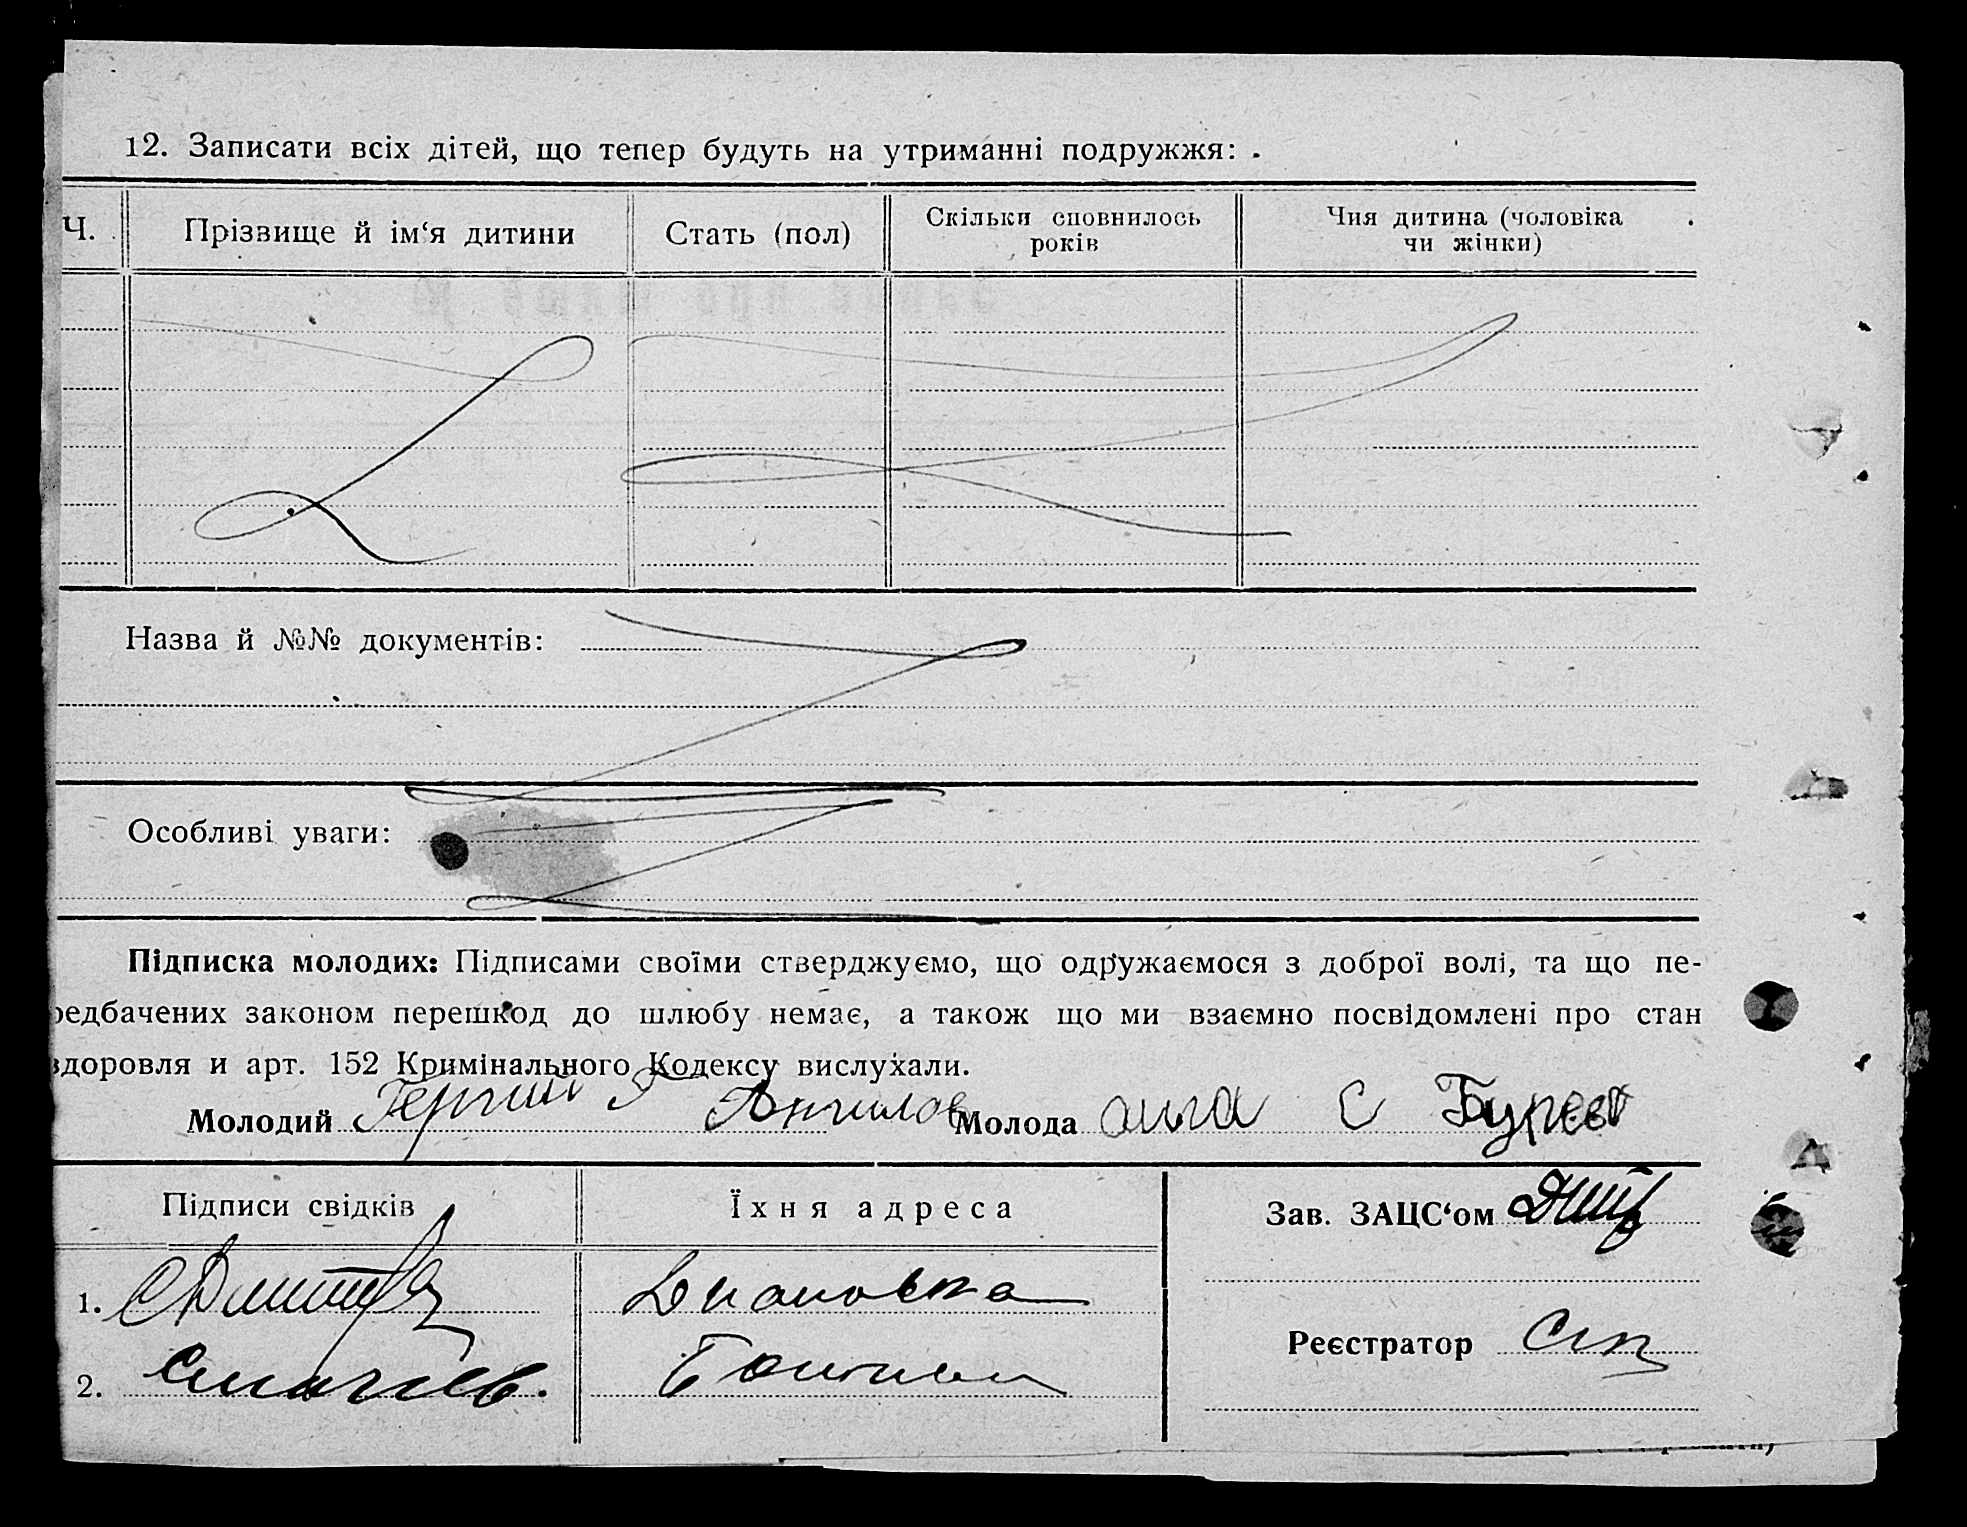 12. Записати всіх дітей, що тепер будуть на утриманні подружжя:
Ч. Прізвище й ім‘я дитини Стать (пол) Скільки сповнилось років Чия дитина (чоловіка чи жінки)
Назва й №№ документів:
Особливі уваги:
Підписка молодих: Підписами своїми стверджуємо, що одружаємося з доброї волі, та що пе-
редбачених законом перешкод до шлюбу немає, а також що ми взаємно посвідомлені про стан
здоровля и арт. 152 Кримінального Кодексу вислухали.
Молодий Молода С
Підписи свідків Їхня адреса Зав. ЗАЦС‘ом
1.
Реєстратор
2.